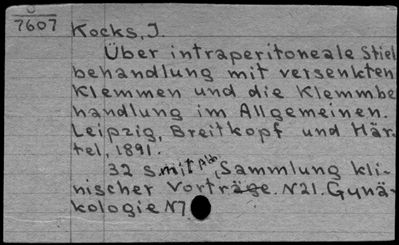 7607
Kocks, J.
Über intraperitoneale Stiel
behandlung mit versenkten
Klemmen und die Klemmbe
handlung im Allgemeinen.
Leipzig, Breitkopf und Här-
tel, 1891.
32 S. mit Abb. Sammlung kli-
nischer Vorträge. N21. Gynä-
kologie N7